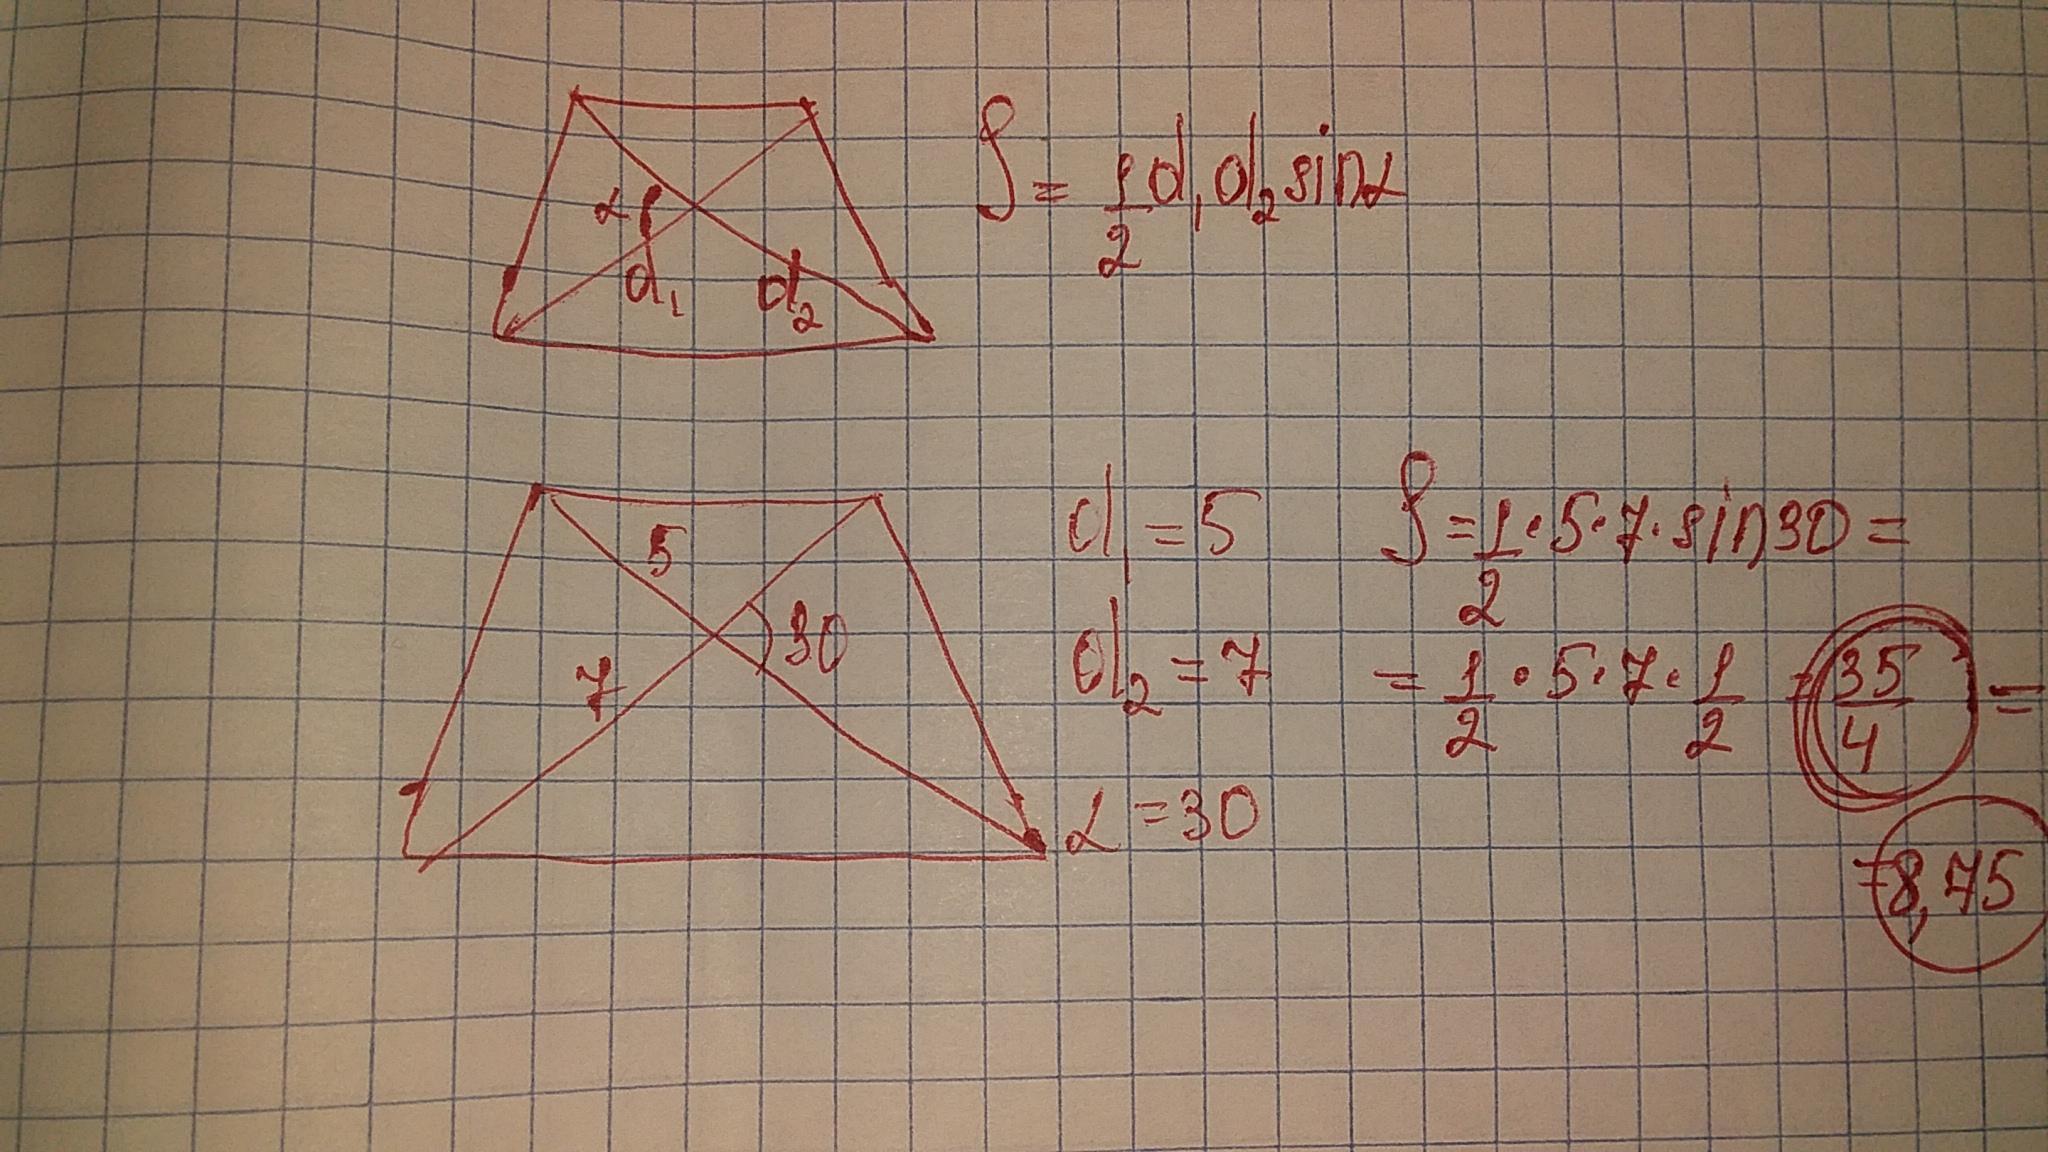 α
d₁
d₂
S = 1/2 d₁ d₂ sin α
5
7
30
d₁ = 5
d₂ = 7
α = 30
S = 1/2 · 5 · 7 · sin 30 =
= 1/2 · 5 · 7 · 1/2 = 35/4 =
= 8,75